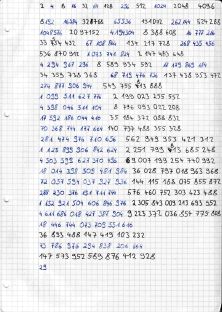 2 4 8 16 32 64 128 256 512 1024 2048 4096
8192 16384 32768 65536 131072 262144 524 288
1048576 2097152 4194304 8 388 608 16 777 216
33 554 432 67 108 864 134 217 728 268 435 456
536 870 912 1 073 741 824 2 147 483 648
4 294 967 296 8 589 934 592 17 179 869 184
34 359 738 368 68 719 476 736 137 438 953 472
274 877 906 944 549 755 813 888
1 099 511 627 776 2 199 023 255 552
4 398 046 511 104 8 796 093 022 208
17 592 186 044 416 35 184 372 088 832
70 368 744 177 664 140 737 488 355 328
281 474 976 710 656 562 949 953 421 312
1 125 899 906 842 624 2 251 799 813 685 248
4 503 599 627 370 496 9 007 199 254 740 992
18 014 398 509 481 984 36 028 797 018 963 968
72 057 594 037 927 936 144 115 188 075 855 872
288 230 376 151 711 744 576 460 752 303 423 488
1 152 921 504 606 846 976 2 305 843 009 213 693 952
4 611 686 018 427 387 904 9 223 372 036 854 775 808
18 446 744 073 709 551 616
36 893 488 147 419 103 232
73 786 976 294 838 206 464
147 573 952 589 676 412 928
29